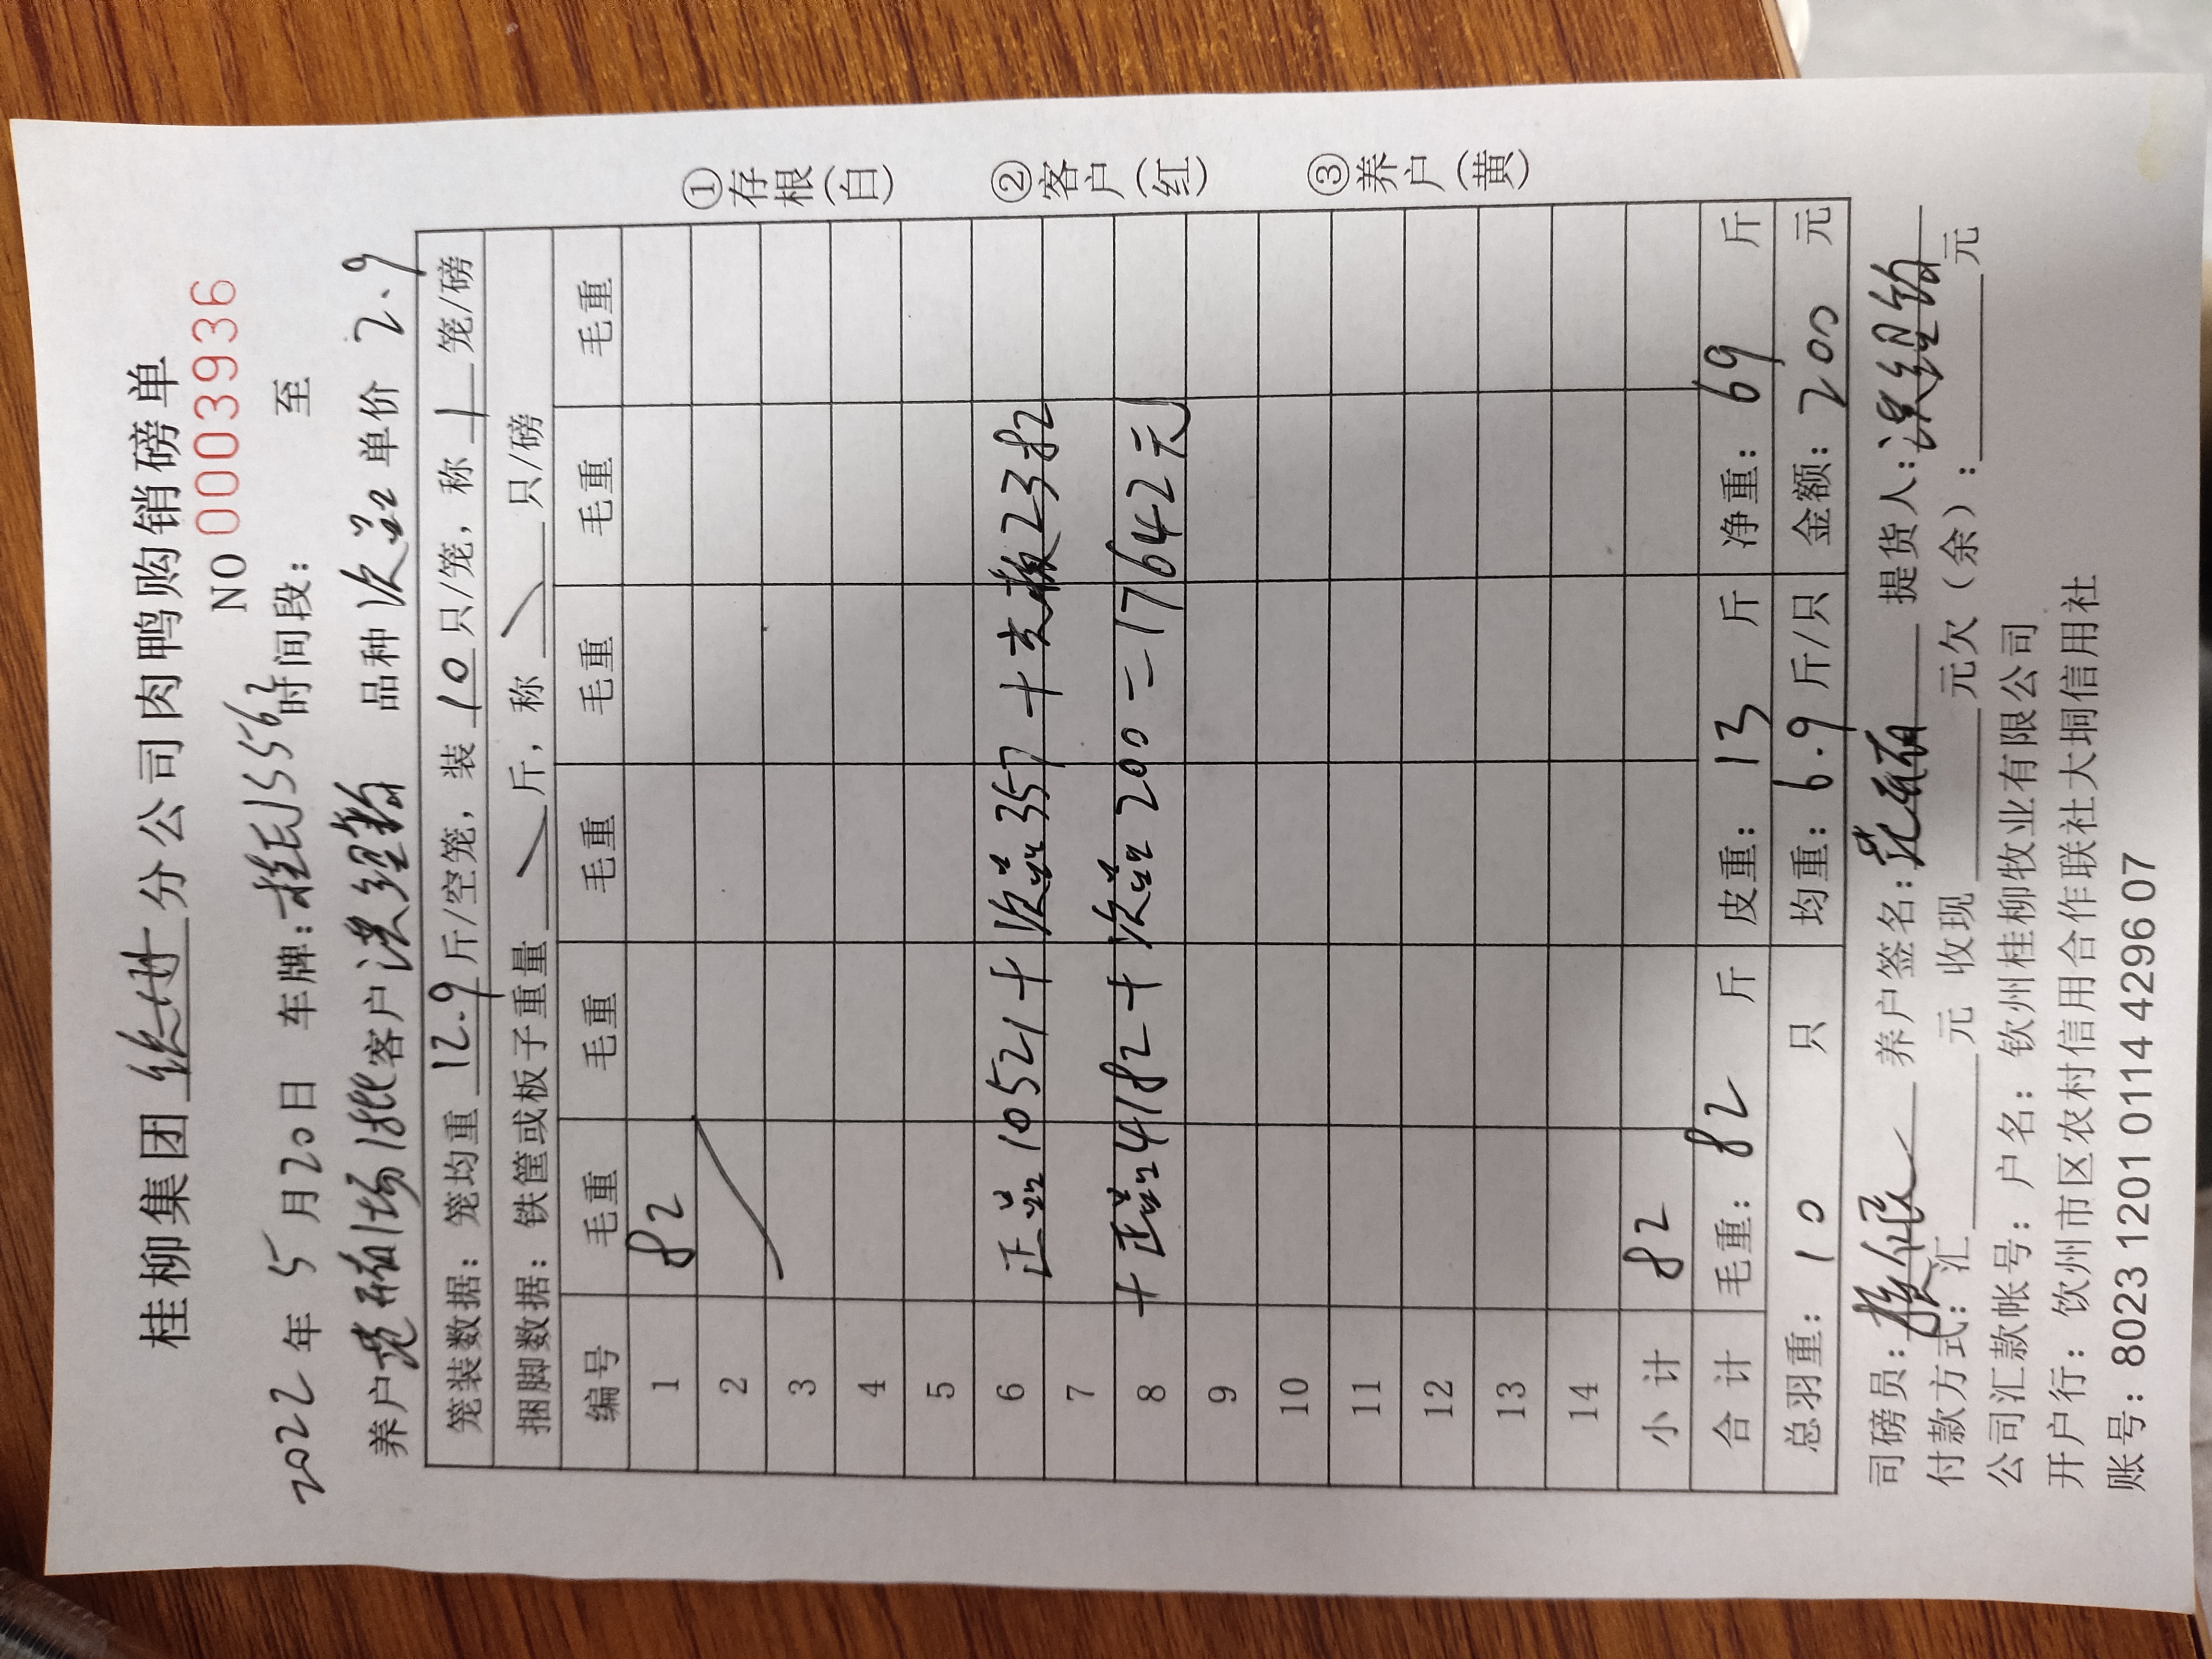 桂柳集团 分公司肉鸭购销磅单
NO 0003936
2022年 5月20日 车牌:桂 J5562 时间段: 至
养户 客户洪经韵 品种 次品 单价 2.9
笼装数据:笼均重 12.9 斤/空笼,装 10 只/笼,称 1 笼/磅
捆脚数据:铁筐或板子重量 斤,称 只/磅
编号 毛重 毛重 毛重 毛重 毛重 毛重
1 82
2
3
4
5
6 正品10521+次品357+ 2382
7
8 +正品4182+次品200=17642元
9
10
11
12
13
14
小计 82
合计 毛重:82 斤 皮重:13 斤 净重:69 斤
总羽重:10 只 均重:6.9 斤/只 金额:200 元
①存根(白) ②客户(红) ③养户(黄)
司磅员: 养户签名: 提货人:洪经韵
付款方式:汇 元 收现 元欠(余): 元
公司汇款帐号:户名:钦州桂柳牧业有限公司
开户行:钦州市区农村信用合作联社大垌信用社
账号:8023 1201 0114 4296 07